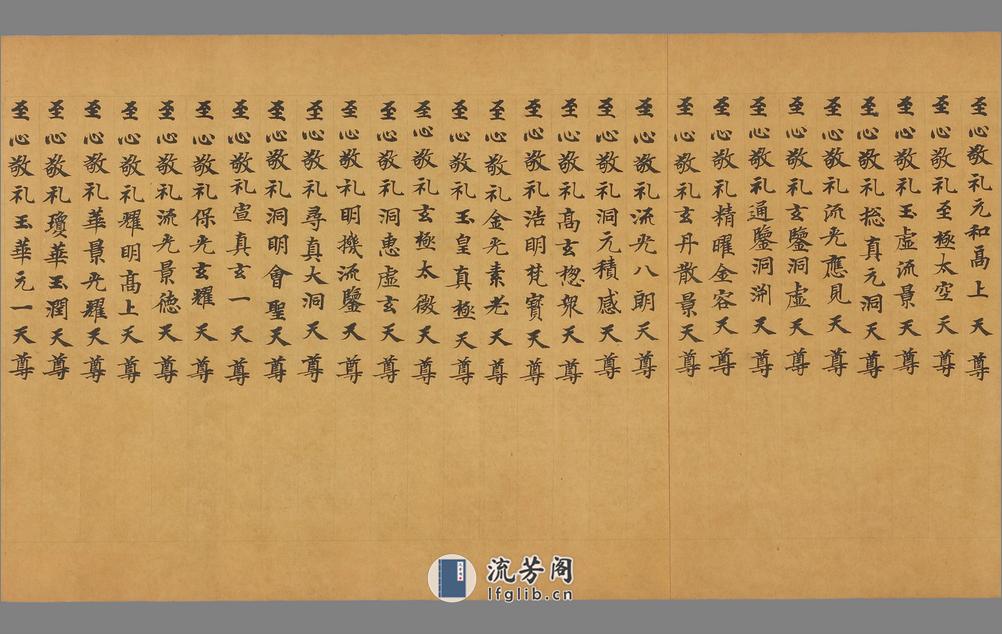 至心敬礼元和高上天尊
至心敬礼至極太空天尊
至心敬礼玉虚流景天尊
至心敬礼揔真元洞天尊
至心敬礼流光應見天尊
至心敬礼玄鑒洞虚天尊
至心敬礼通鑒洞渊天尊
至心敬礼精曜金容天尊
至心敬礼玄丹散景天尊
至心敬礼流光八朗天尊
至心敬礼洞元積感天尊
至心敬礼高玄揔衆天尊
至心敬礼浩明梵寳天尊
至心敬礼金光素光天尊
至心敬礼玉皇真極天尊
至心敬礼玄極太微天尊
至心敬礼洞惠虚玄天尊
至心敬礼明機流鑒天尊
至心敬礼尋真大洞天尊
至心敬礼洞明會聖天尊
至心敬礼宣真玄一天尊
至心敬礼保光玄耀天尊
至心敬礼流光景德天尊
至心敬礼耀明高上天尊
至心敬礼華景光耀天尊
至心敬礼瓊華玉潤天尊
至心敬礼玉華元一天尊
流芳阁
lfglib.cn